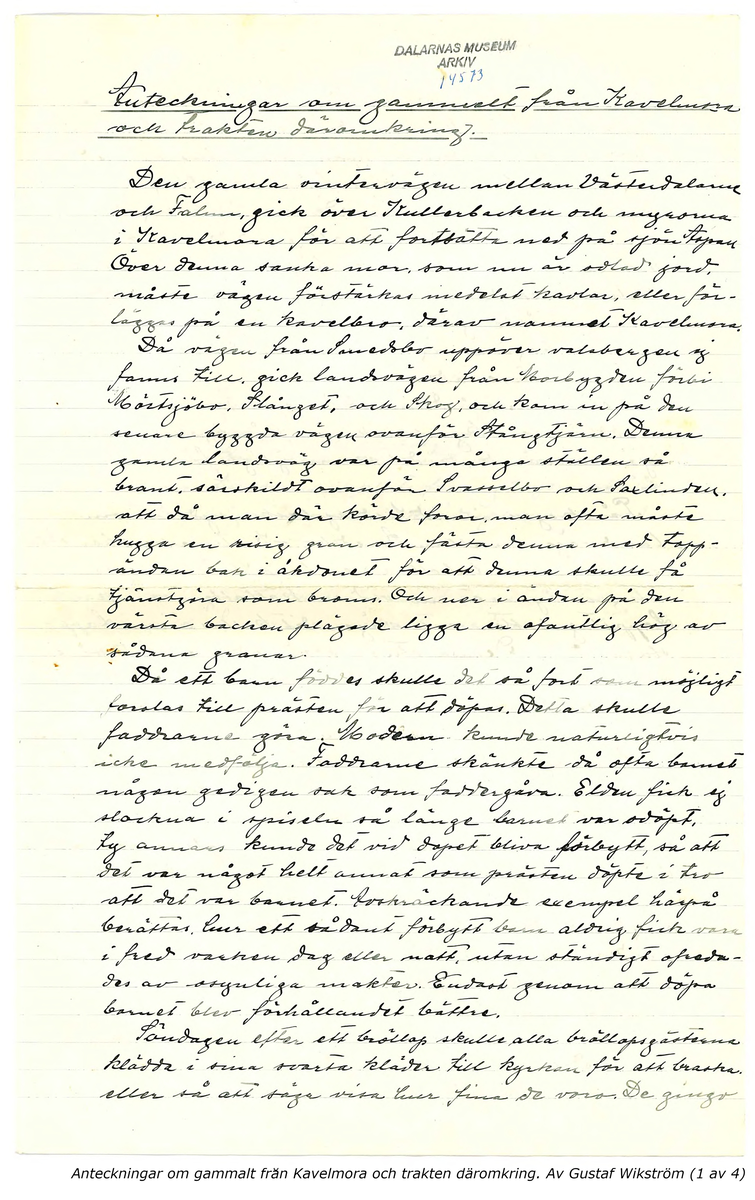 DALARNAS MUSEUM
ARKIV
14573
Anteckningar om gammalt från Kavelmora
och trakten däromkring.
Den gamla vintervägen mellan Västerdalarne
och Falun, gick över Kullerbacken och myrorna
i Kavelmora för att fortsätta ned på sjön Aspan
Över denna sanka mor, som nu är odlad jord,
måste vägen förstärkas medelst kavlar, eller för-
läggas på en kavelbro, därav namnet Kavelmora.
Då vägen från Smedsbo uppöver valsbergen ej
fanns till, gick landsvägen från Norbygden förbi
Mörtsjöbo, Slånget, och Skog, och kom in på den
senare byggda vägen ovanför Stångtjärn. Denna
gamla landsväg var på många ställen så
brant, särskildt ovanför Svasselbo och Saxlinden,
att då man där körde foror, man ofta måste
hugga en risig gran och fästa denna med topp-
ändan bak i åkdonet för att denna skulle få
tjänstgöra som broms. Och ner i ändan på den
värsta backen plägade ligga en ofantlig hög av
sådana granar.
Då ett barn föddes skulle det så fort som möjligt
forslas till prästen för att döpas. Detta skulle
faddrarne göra. Modern kunde naturligtvis
icke medfölja. Faddrarne skänkte då ofta barnet
någon gedigen sak som faddergåva. Elden fick ej
slockna i spiseln så länge barnet var odöpt,
ty annars kunde det vid dopet bliva förbytt, så att
det var något helt annat som prästen döpte i tro
att det var barnet. Avskräckande exempel härpå
berättas, hur ett sådant förbytt barn aldrig fick vara
i fred varken dag eller natt, utan ständigt ofreda-
des av osynliga makter. Endast genom att döpa
barnet blev förhållandet bättre.
Söndagen efter ett bröllop skulle alla bröllopsgästerna
klädda i sina svarta kläder till kyrkan för att braska,
eller så att säga visa hur fina de voro. De gingo
Anteckningar om gammalt från Kavelmora och trakten däromkring. Av Gustaf Wikström (1 av 4)